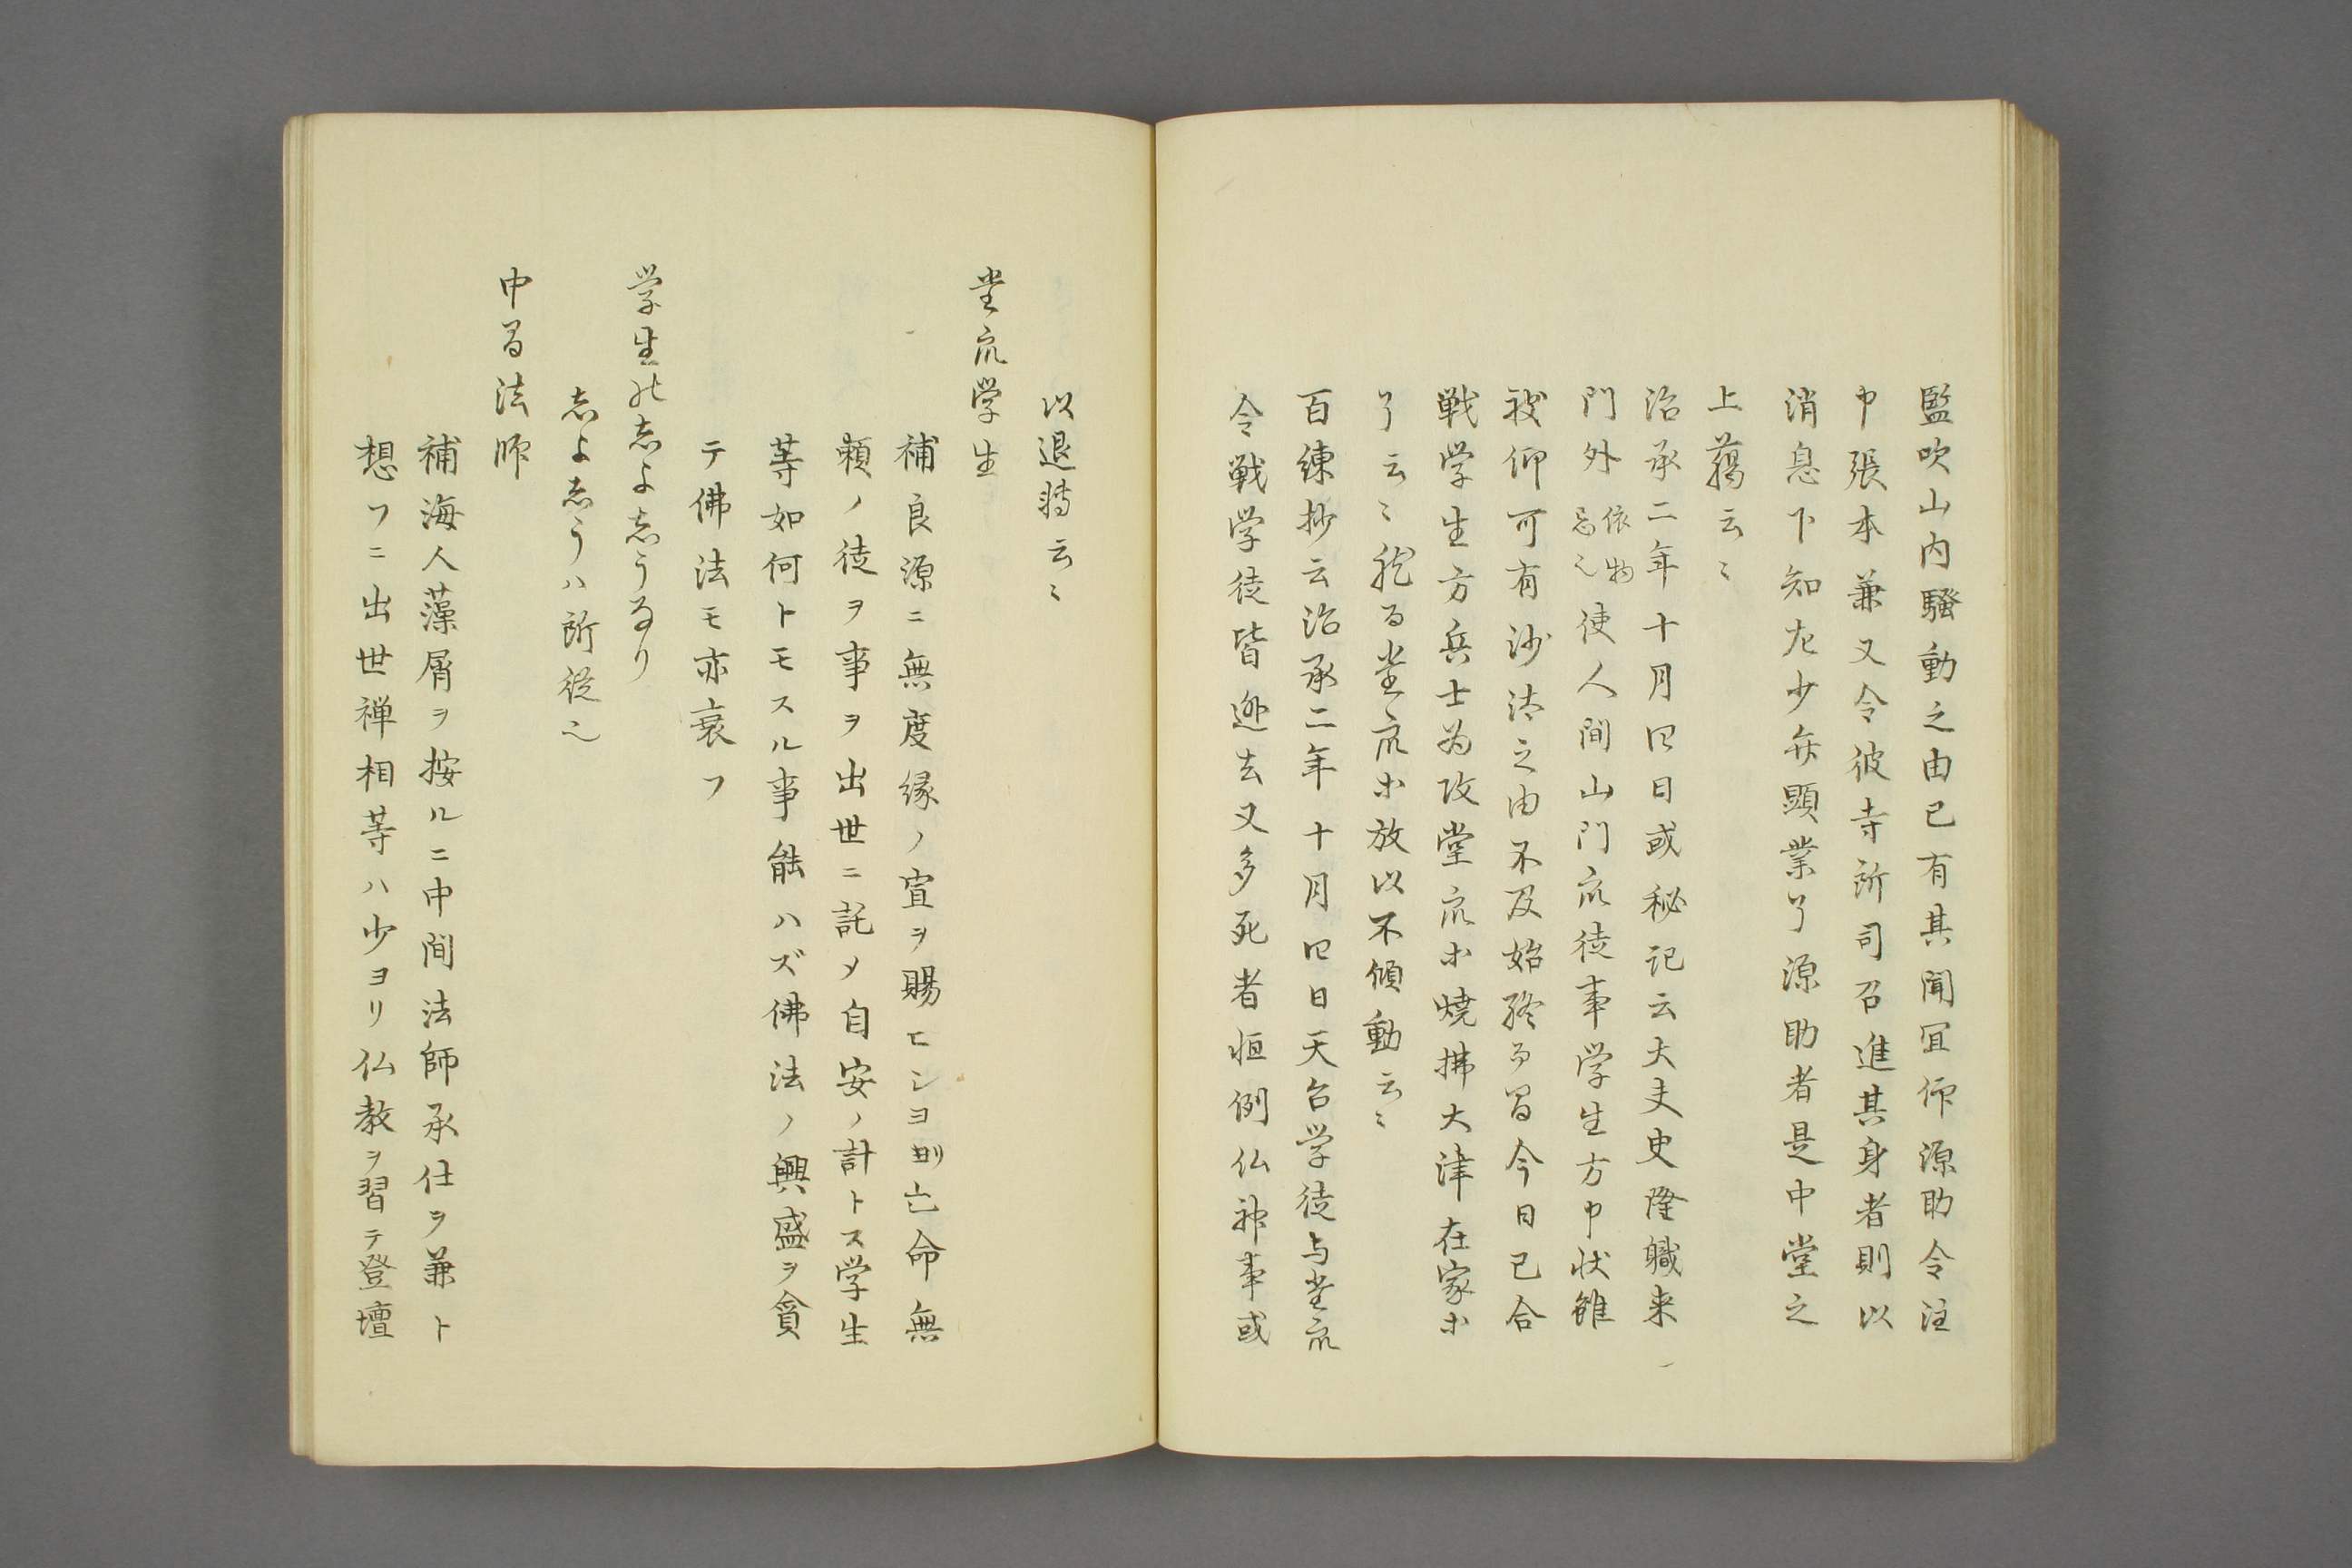 監吹山内騒動之由已有其聞冝仰源助令注
申張本兼又令彼寺所司召進其身者則以
消息下知左少弁顕業了源助者是中堂之
上﨟云〻
治承二年十月四日或秘記云大夫史隆職来
門外依物忌之使人間山門衆徒事学生方申状雖
被仰可有沙汰之由不及始終而間今日已合
戦学生方兵士為攻堂衆ホ焼拂大津在家ホ
了云〻然而堂衆ホ放以不傾動云〻
百練抄云治承二年十月四日天台学徒与堂衆
令戦学徒皆逃去又多死者恒例仏神事或
以退轉云〻
堂衆学生
補良源ニ無度縁ノ宣ヲ賜ヒシヨリ亡命無
頼ノ徒ヲ事ヲ出世ニ託メ自安ノ計トス学生
等如何トモスル事能ハズ佛法ノ興盛ヲ貪
テ佛法モ亦衰フ
学生のしよしうなり
しよしうハ所従也
中間法師
補海人藻屑ヲ按ルニ中間法師承仕ヲ兼ト
想フニ出世禅相等ハ少ヨリ仏教ヲ習テ登壇